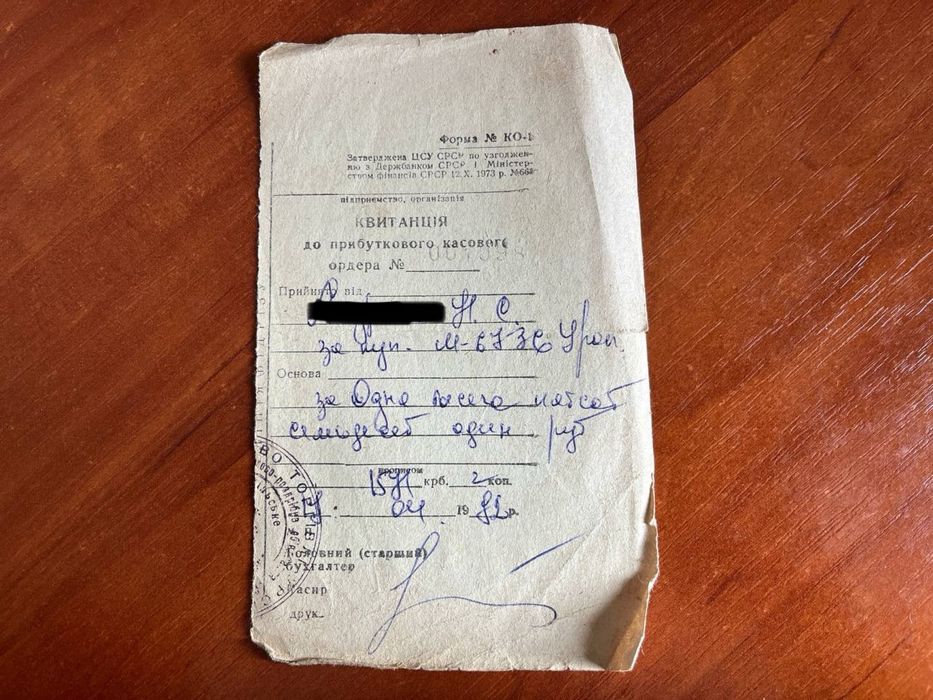 Форма № КО-1
Затверджена ЦСУ СРСР по узгоджен-
ню з Держбанком СРСР і Міністер-
ством фінансів СРСР 12.X. 1973 р. №668
підприємство, організація
КВИТАНЦІЯ
до прибуткового касового
ордера №
Прийнято від
Н. С
за куп. М-6736 Урал
Основа
за Одна тисяча пятсот
семдесят один руб
прописом
1571 крб. 2 коп.
04. 1982р.
Головний (старший)
бухгалтер
Касир
друк.
ВО ТОРГІВ